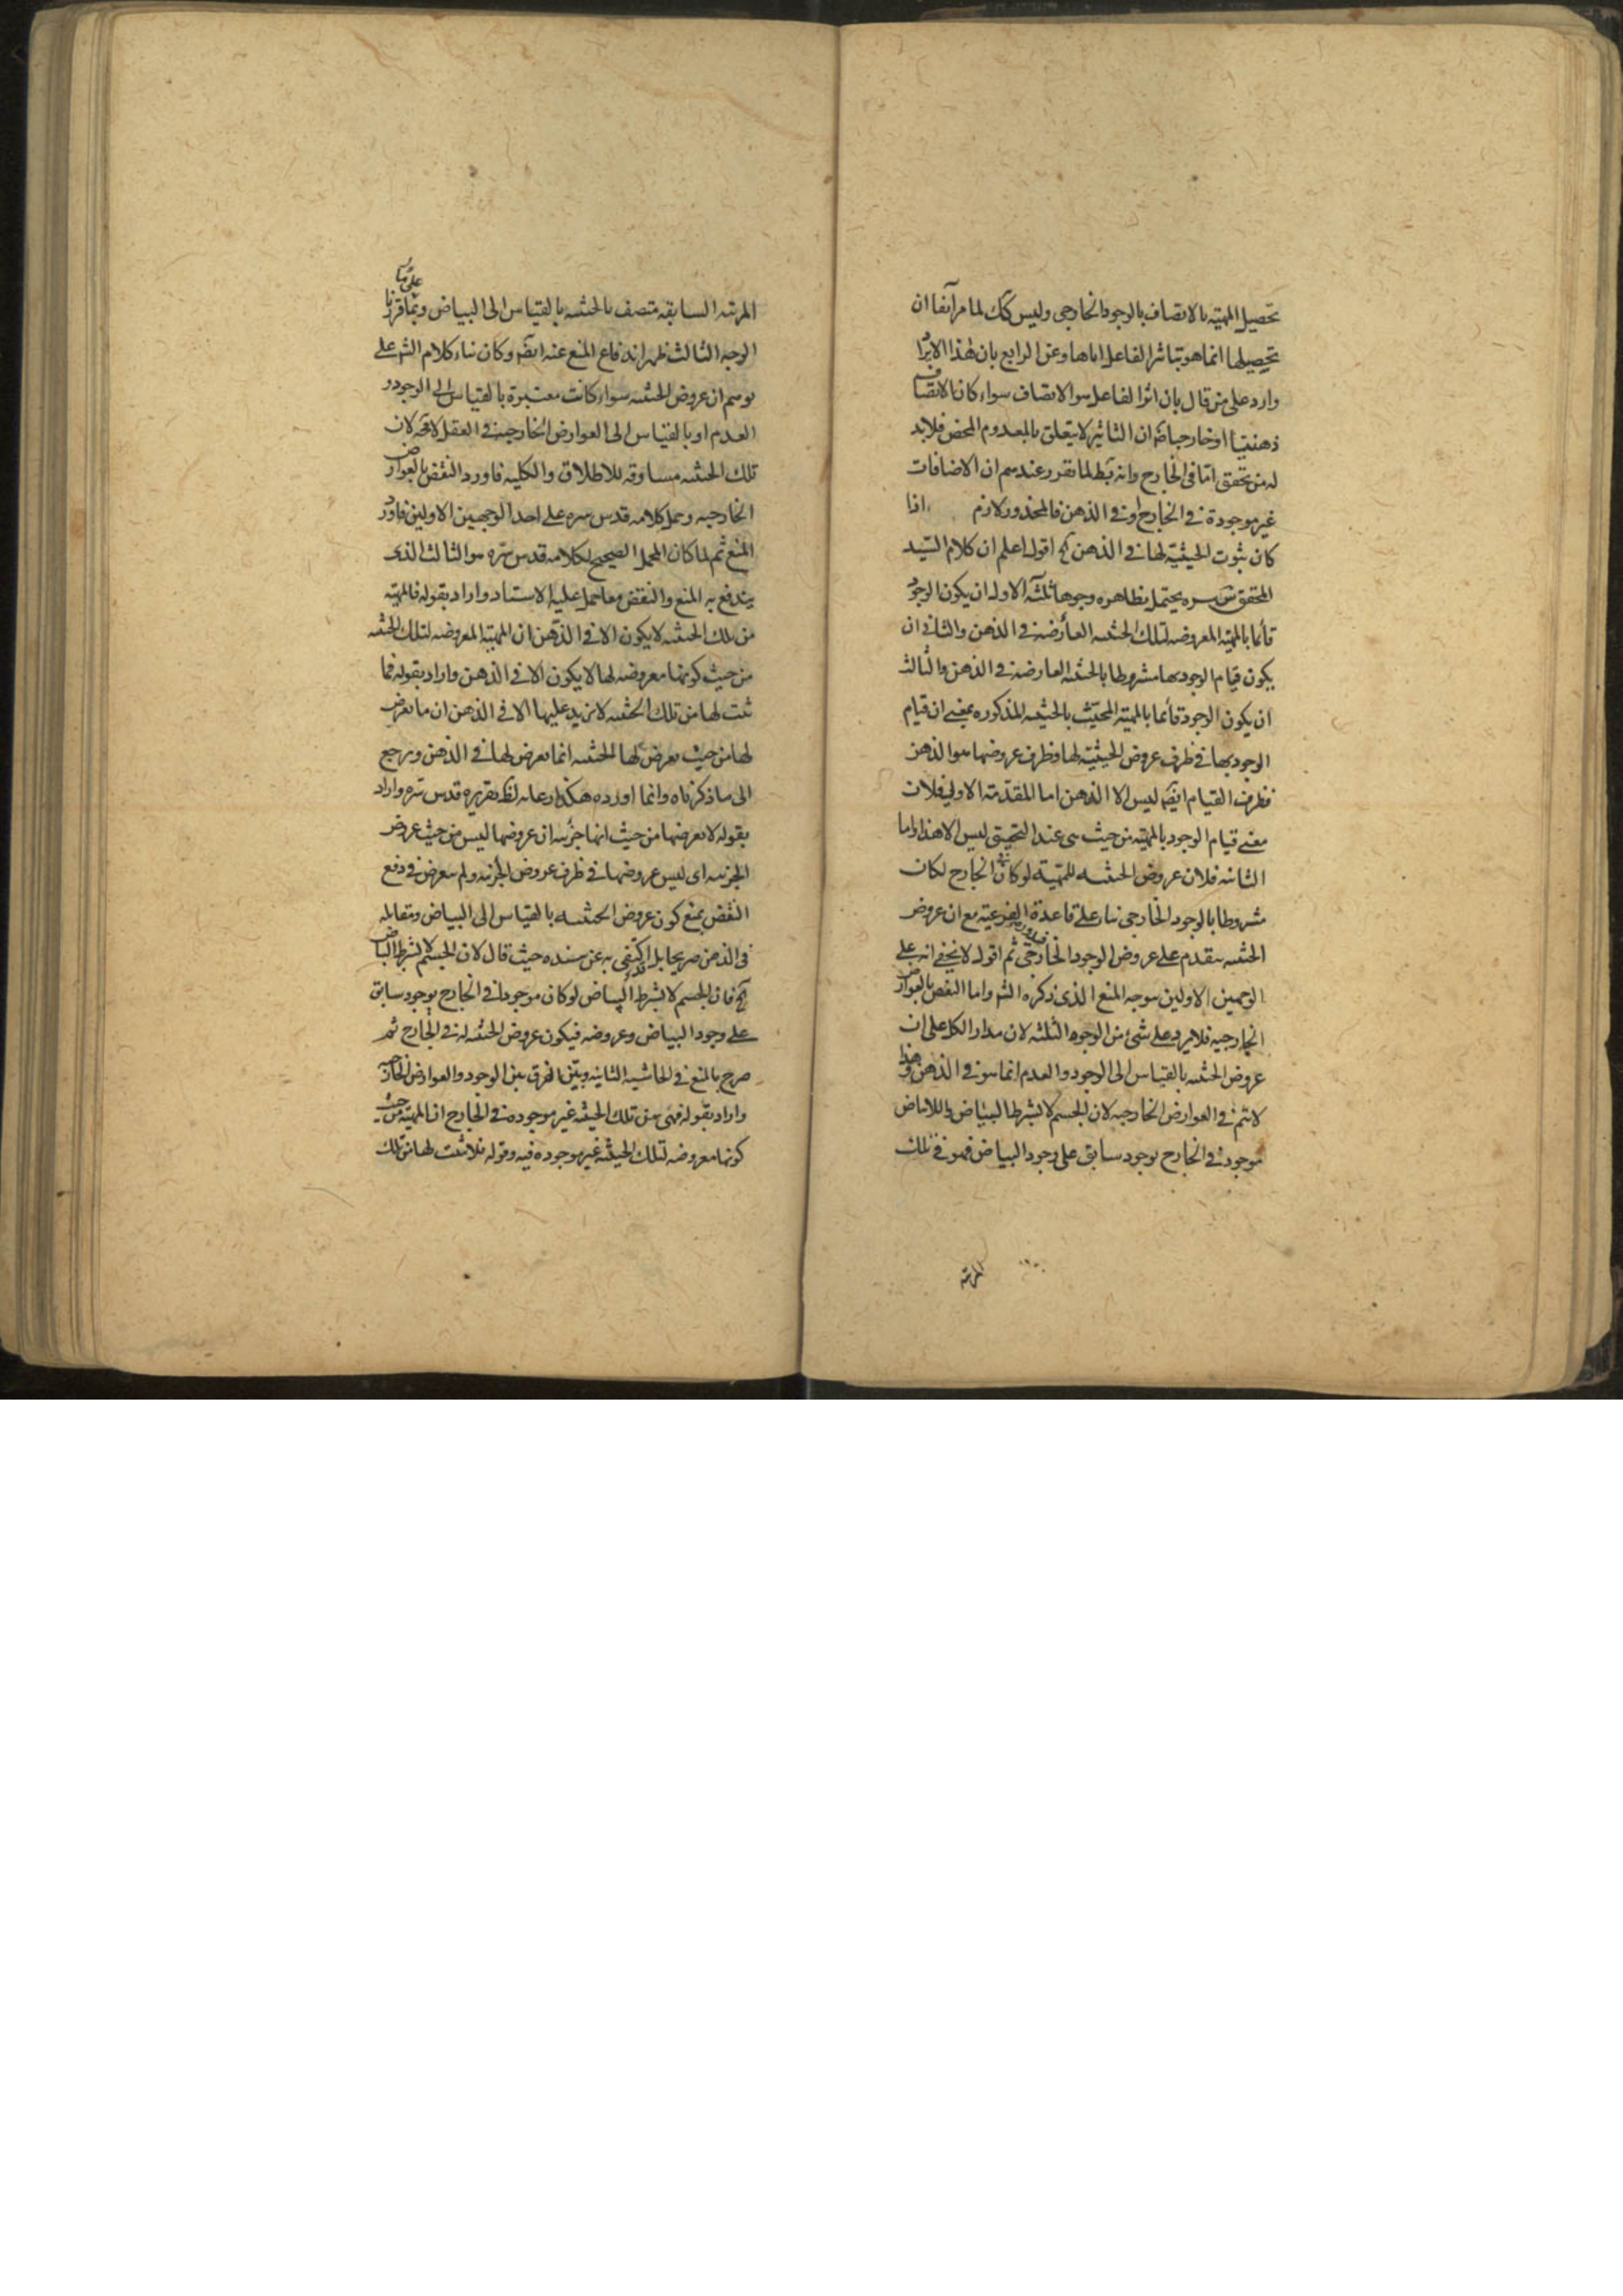 تحصيل المهيه بالاتصاف بالوجود الخارجى وليس كك لما مر آنفا ان
تحصيلها انما هو بتاثير الفاعل اياها وعن الرابع بان هذا الايراد
وارد على من قال بان اثر الفاعل هو الاتصاف سواء كان الاتصاف
ذهنيا او خارجيا ان التاثير لا يتعلق بالمعدوم المحض فلابد
له من تحقق اما فى الخارج وانه بط لما تقرر عندهم ان الاضافات
غير موجودة فى الخارج او فى الذهن فالمحذور لازم اذا
كان ثبوت الحيثية لها فى الذهن آه اقول اعلم ان كلام السيد
المحقق قدس سره يحتمل بظاهره وجوها ثلثه الاول ان يكون الوجود
قائما بالمهيه المعروضه لتلك الحيثيه العارضه فى الذهن والثانى ان
يكون قيام الوجود بها مشروطا بالحيثيه العارضه فى الذهن والثالث
ان يكون الوجود قائما بالمهيه المحيث بالحيثيه المذكوره بمعنى ان قيام
الوجود بها فى ظرف عروض الحيثية لها وظرف عروضها هو الذهن
فظرف القيام ايضا ليس الا الذهن اما المقدمة الاولى فلان
معنى قيام الوجود بالمهيه من حيث هى عند التحقيق ليس الا هذا واما
الثانيه فلان عروض الحيثيه للمهية لو كان فى الخارج لكان
مشروطا بالوجود الخارجى بناء على قاعدة الفرعية مع ان عروض
الحيثيه متقدم على عروض الوجود الخارجى ثم اقول لا يخفى انه على
الوجهين الاولين يتوجه المنع الذى ذكره الش واما النقض بالعوارض
الخارجيه فلا يرد على شئ من الوجوه الثلثه لان مدار الكل على ان
عروض الحيثيه بالقياس الى الوجود والعدم انما هو فى الذهن وهذا
لا يتم فى العوارض الخارجيه لان الجسم لا بشرط البياض واللابياض
موجود فى الخارج بوجود سابق على وجود البياض فهو فى تلك
المرتبه
المرتبه السابقه متصف بالحيثيه بالقياس الى البياض وبما قررنا
على ما
الوجه الثالث ظهر اندفاع المنع عنه ايضا وكان بناء كلام الش على
توهم ان عروض الحيثيه سواء كانت معتبرة بالقياس الى الوجود و
العدم او بالقياس الى العوارض الخارجيه فى العقل لا فيه لان
تلك الحيثيه مساوقه للاطلاق والكليه فاورد النقض بالعوارض
الخارجيه وحمل كلامه قدس سره على احد الوجهين الاولين فاورد
المنع ثم لما كان المحمل الصحيح لكلامه قدس سره هو الثالث الذى
يندفع به المنع والنقض معا حمل عليه الاستاد واراد بقوله فالمهيه
من تلك الحيثيه لا يكون الا فى الذهن ان المهيه المعروضه لتلك الحيثيه
من حيث كونها معروضه لها لا يكون الا فى الذهن واراد بقوله فما
ثبت لها من تلك الحيثيه لا يزيد عليها الا فى الذهن ان ما يعرض
لها من حيث يعرض لها الحيثيه انما يعرض لها فى الذهن ويرجع
الى ما ذكرناه وانما اورده هكذا رعايه لظ تقريره قدس سره واراد
بقوله لا يعرضها من حيث انها جزئيه ان عروضها ليس من حيث عروض
الجزئيه اى ليس عروضها فى ظرف عروض الجزئيه ولم يتعرض فى دفع
النقض بمنع كون عروض الحيثيه بالقياس الى البياض ومقابله
فى الذهن صريحا بل اكتفى به عن سنده حيث قال لان الجسم لا بشرط البياض
آه فان الجسم لا بشرط البياض لو كان موجودا فى الخارج بوجود سابق
على وجود البياض وعروضه فيكون عروض الحيثيه له فى الخارج ثم
صرح بالمنع فى الحاشيه الثانيه وبين الفرق بين الوجود والعوارض الخارجيه
واراد بقوله فهى من تلك الحيثيه غير موجوده فى الخارج ان المهيه من حيث
كونها معروضه لتلك الحيثيه غير موجوده فيه وقوله فلا يثبت لها من تلك